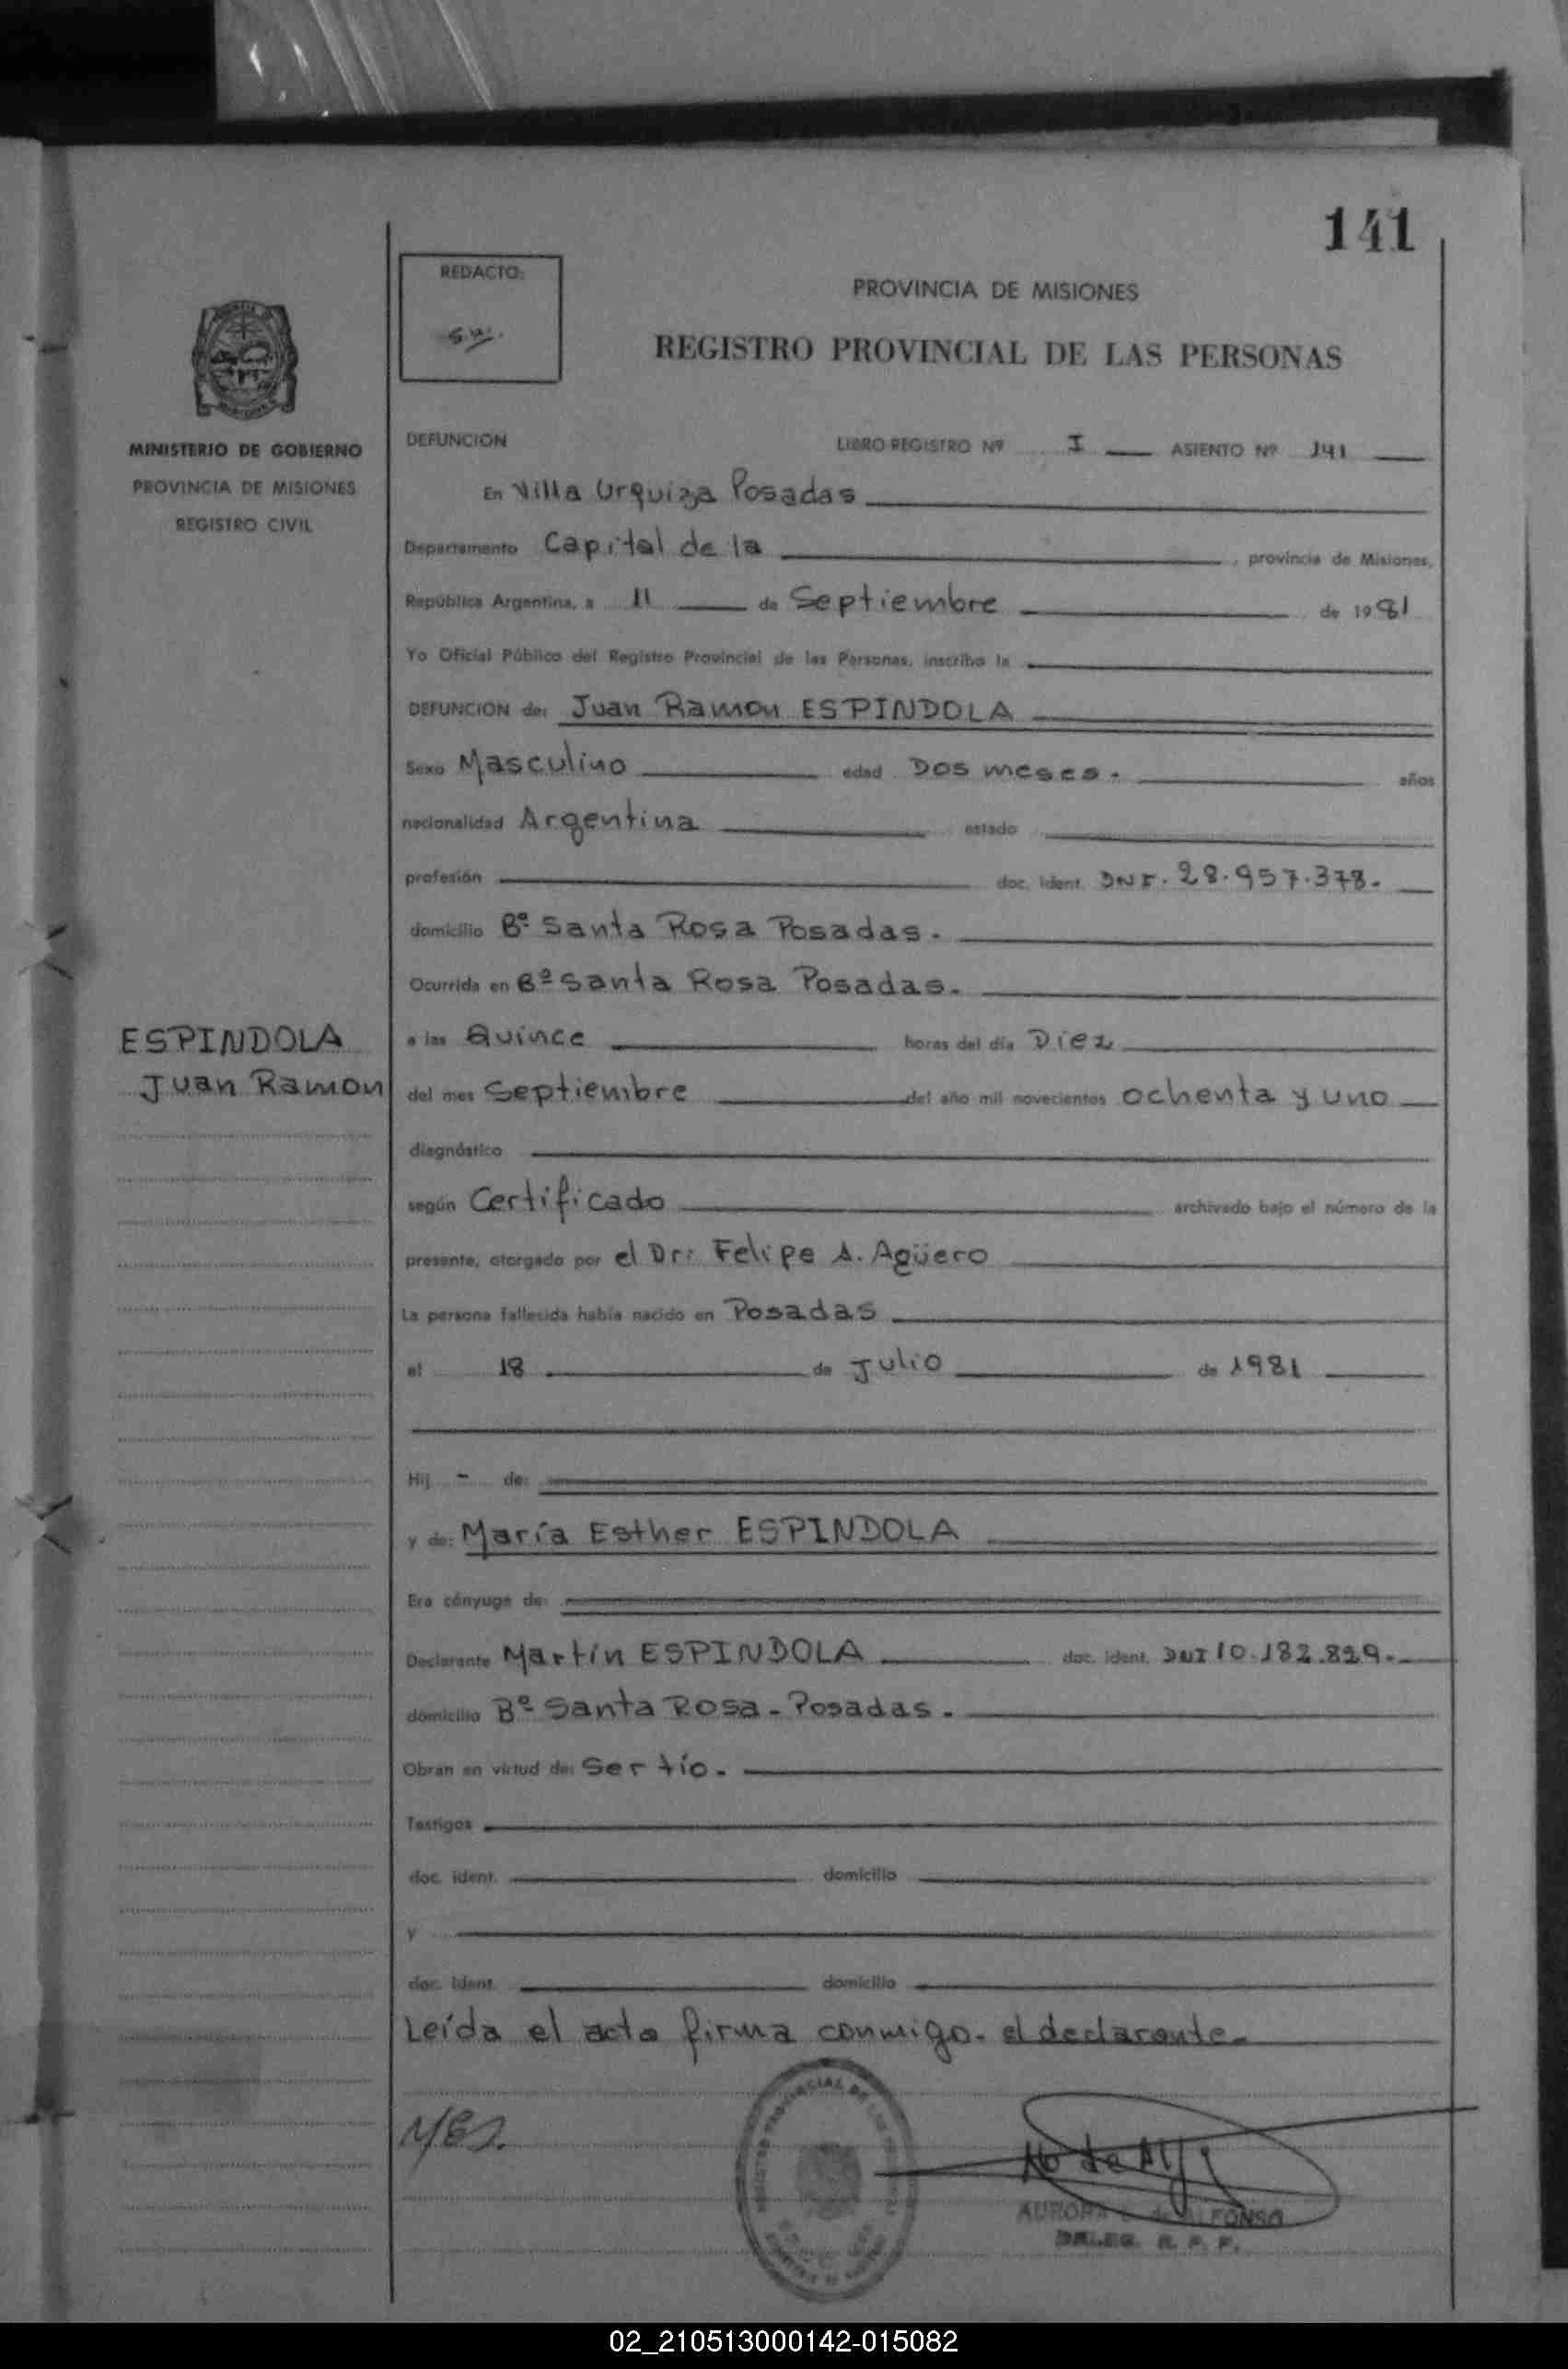 141
REDACTO:
PROVINCIA DE MISIONES
REGISTRO PROVINCIAL DE LAS PERSONAS
MINISTERIO DE GOBIERNO
PROVINCIA DE MISIONES
REGISTRO CIVIL
DEFUNCION LIBRO REGISTRO Nº I ASIENTO Nº 141
En Villa Urquiza Posadas
Departamento Capital de la , provincia de Misiones,
República Argentina, a 11 de Septiembre de 1981
Yo Oficial Público del Registro Provincial de las Personas, inscribo la
DEFUNCION de: Juan Ramon ESPINDOLA
Sexo Masculino edad Dos meses. años
nacionalidad Argentina estado
profesión doc. ident. DNI. 28.957.378.
domicilio Bº Santa Rosa Posadas.
Ocurrida en Bº Santa Rosa Posadas.
ESPINDOLA
Juan Ramon
a las Quince horas del día Diez
del mes Septiembre del año mil novecientos ochenta y uno
diagnóstico
según Certificado archivado bajo el número de la
presente, otorgado por el Dr: Felipe A. Agüero
La persona fallecida había nacido en Posadas
el 18 de Julio de 1981
Hij - de:
y de: María Esther ESPINDOLA
Era cónyuge de:
Declarante Martín ESPINDOLA doc. ident. DNI 10.182.829.
domicilio Bº Santa Rosa - Posadas.
Obran en virtud de: Ser tío.
Testigos
doc. ident. domicilio
y
doc. ident. domicilio
Leída el acta firma conmigo. el declarante.
AURORA de ALFONSO
DELEG. R. P. P.
02_210513000142-015082